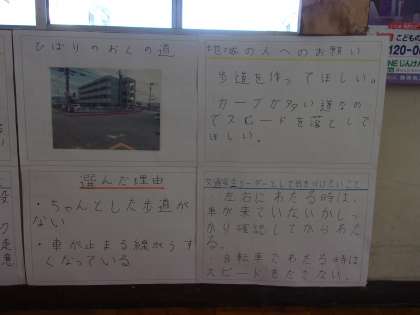 ひばりのおくの道
地域の人へのお願い
歩道を作ってほしい。
カーブが多い道なの
でスピードを落として
ほしい。
選んだ理由
・ちゃんとした歩道が
ない
・車が止まる線がうす
くなっている
交通安全リーダーとして気を付けたいこと
・左右にわたる時は、
車が来ていないかしっ
かり確認してからわた
る。
・自転車でわたる時は
スピードをださない。
こども
120-0